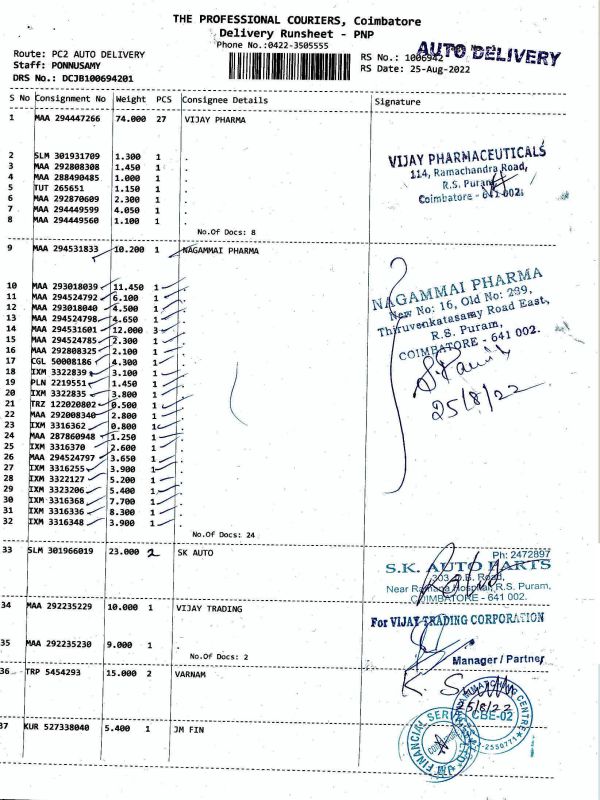 THE PROFESSIONAL COURIERS, Coimbatore
Delivery Runsheet - PNP
Phone No.:0422-3505555
Route: PC2 AUTO DELIVERY
Staff: PONNUSAMY
DRS No.: DCJB100694201
RS No.: 1006942
AUTO DELIVERY
RS Date: 25-Aug-2022
S No Consignment No Weight PCS Consignee Details Signature
1 MAA 294447266 74.000 27 VIJAY PHARMA
2 SLM 301931709 1.300 1 .
3 MAA 292808308 1.450 1 .
4 MAA 288490485 1.000 1 .
5 TUT 265651 1.150 1 .
6 MAA 292870609 2.300 1 .
7 MAA 294449599 4.050 1 .
8 MAA 294449560 1.100 1 .
No.Of Docs: 8
VIJAY PHARMACEUTICALS
114, Ramachandra Road,
R.S. Puram,
Coimbatore - 641 002.
9 MAA 294531833 10.200 1 NAGAMMAI PHARMA
10 MAA 293018039 11.450 1 .
11 MAA 294524792 6.100 1 .
12 MAA 293018040 4.500 1 .
13 MAA 294524798 4.650 1 .
14 MAA 294531601 12.000 3 .
15 MAA 294524785 2.300 1 .
16 MAA 292808325 2.100 1 .
17 CGL 50008186 4.300 1 .
18 IXM 3322839 3.100 1 .
19 PLN 2219551 1.450 1 .
20 IXM 3322835 3.800 1 .
21 TRZ 122020802 0.500 1 .
22 MAA 292008340 2.800 1 .
23 IXM 3316362 0.800 1 .
24 MAA 287860948 1.250 1 .
25 IXM 3316370 2.600 1 .
26 MAA 294524797 3.650 1 .
27 IXM 3316255 3.900 1 .
28 IXM 3322127 5.200 1 .
29 IXM 3323206 5.400 1 .
30 IXM 3316368 7.700 1 .
31 IXM 3316336 8.300 1 .
32 IXM 3316348 3.900 1 .
No.Of Docs: 24
NAGAMMAI PHARMA
New No: 16, Old No: 289,
Thiruvenkatasamy Road East,
R.S. Puram,
COIMBATORE - 641 002.
25/8/22
33 SLM 301966019 23.000 2 SK AUTO
Ph: 2472897
S.K. AUTO PARTS
303, D.B. Road,
Near Ramana Hospital, R.S. Puram.
COIMBATORE - 641 002.
34 MAA 292235229 10.000 1 VIJAY TRADING
35 MAA 292235230 9.000 1 .
No.Of Docs: 2
For VIJAY TRADING CORPORATION
Manager / Partner
36 TRP 5454293 15.000 2 VARNAM
25/8/22
CBE-02
37 KUR 527338040 5.400 1 JM FIN
FINANCIAL SER